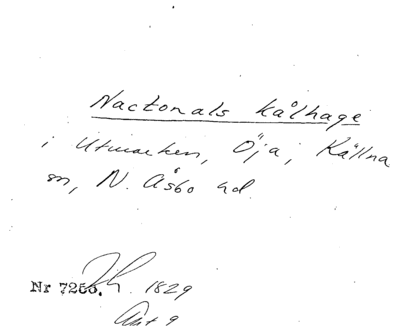 Nactonals kålhage
i Utmarken, Öja, Källna
sn, N. Åsbo hd.
Nr 7266. 1829
Akt 9